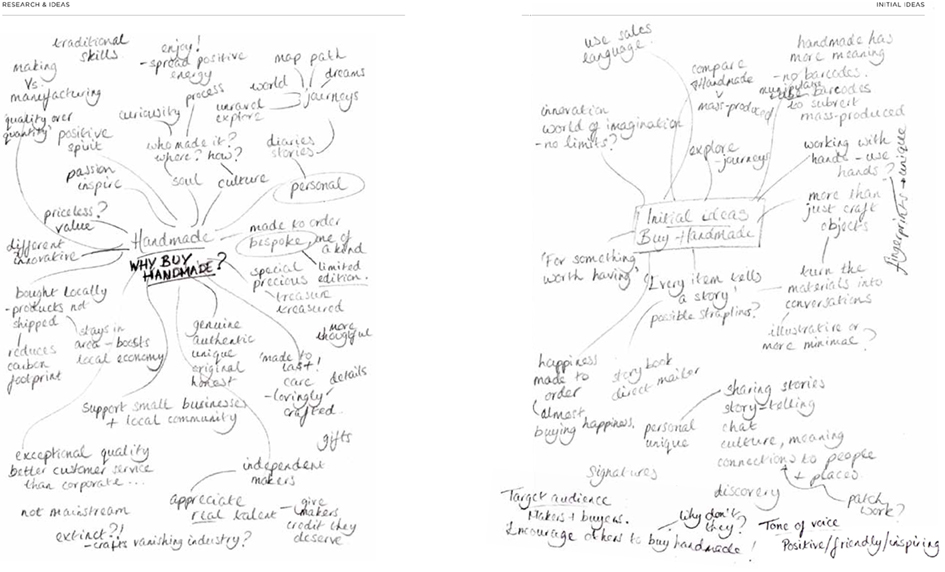 RESEARCH & IDEAS
traditional
skills.
making
vs.
manufacturing
'quality over
quantity'
positive
spirit
enjoy!
- spread positive
energy
process
curiousity
who made it?
where? how?
soul
culture
map path
world
dreams
journeys
unravel
explore
diaries
stories
personal
passion
inspire
priceless?
value
different
innovative
Handmade
WHY BUY
HANDMADE?
made to order
bespoke, one of
a kind
special
precious
limited
edition.
treasure
treasured
bought locally
- products not
shipped
reduces
carbon
footprint
stays in
area - boosts
local economy
genuine
authentic
unique
original
honest
'made to
last!'
care
- lovingly
crafted.
more
thoughtful
details
gifts
support small businesses
+ local community
exceptional quality
better customer service
than corporate...
independent
makers
appreciate
real talent
- give
makers
credit they
deserve
not mainstream
extinct?!
- crafts vanishing industry?
INITIAL IDEAS
use sales
language.
compare
Handmade
v
mass-produced
handmade has
more meaning
- no barcodes.
manipulate
barcodes
to subvert
mass-produced
innovation
world of imagination
- no limits?
explore
- journeys
working with
hands - use
hands?
fingerprints → unique
Initial ideas
Buy Handmade
more than
just craft
objects
'For something
worth having'
'Every item tells
a story'
possible straplines?
turn the
materials into
conversations
illustrative or
more minimal?
happiness
made to
order
(almost
buying happiness.
story book
direct mailer
personal
unique
sharing stories
story-telling
chat
culture, meaning
connections to people
+ places.
patch
work?
signatures
discovery
Target audience
Makers + buyers.
Encourage others to buy handmade!
why don't
they?
Tone of voice
Positive/friendly/inspiring